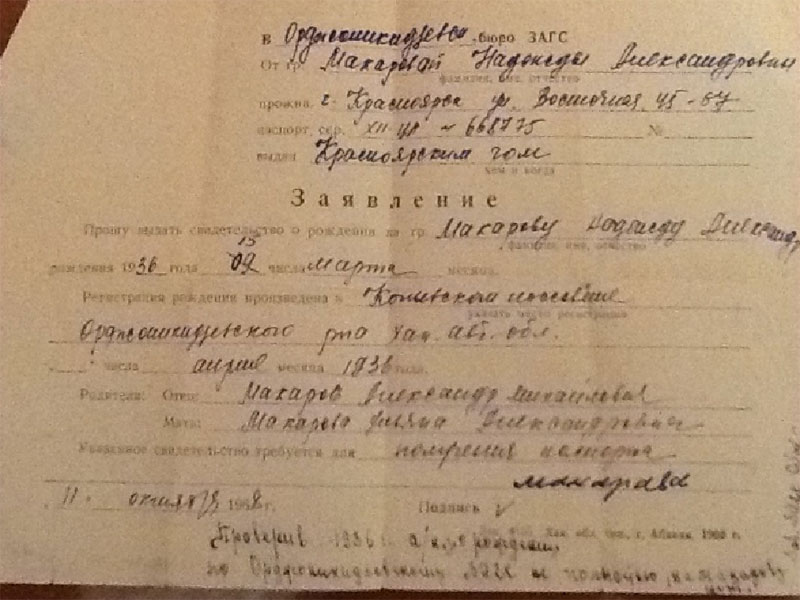 в Орджоникидзевск. бюро ЗАГС
От гр. Макаровай Надежды Александровны
фамилия, имя, отчество
прожив. г. Красноярск ул. Восточная, 45-67
паспорт, сер. XII-ИР № 668775 №
выдан Красноярским гом
кем и когда
Заявление
Прошу выдать свидетельство о рождении на гр. Макарову Надежду Александр
фамилия, имя, отчество
рождения 1936 года 15 09 числа марта месяца.
Регистрация рождения произведена в Копьевском поссовете
указать место регистрации
Орджоникидзевского р-на Хак. авт. обл.
числа апреля месяца 1936 года.
Родители: Отец: Макаров Александр Михайлович
Мать: Макарова Александровна
Указанное свидетельство требуется для получения паспорта
Макарова
11. октября 1968 г.
Подпись
Хак. обл. тип. г. Абакан, 1966 г.
Проверив 1936 г. а/к о рождении
по Орджоникидзевскому ЗАГС не полностью,